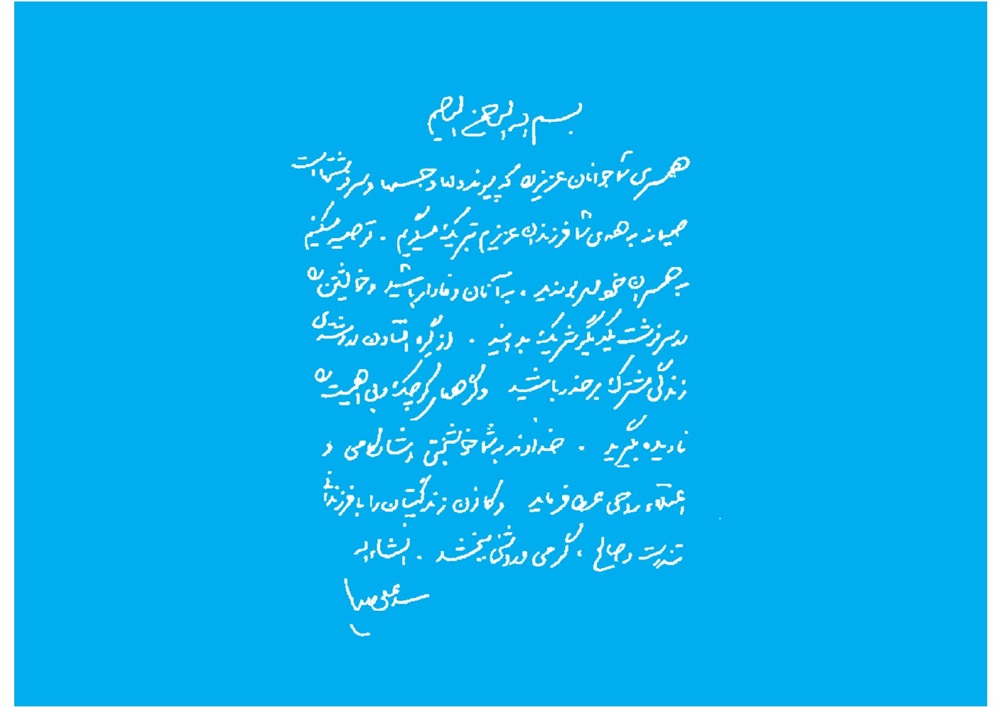 بسم الله الرحمن الرحیم
همسری شما جوانان عزیز را که پیوند دلها و جسمها و سرنوشتهاست
صمیمانه به همه‌ی شما فرزندان عزیزم تبریک میگویم . توصیه میکنم
به همسران خود مهر بورزید ، به آنان وفادار باشید و خویشتن را
در سرنوشت یکدیگر شریک بدانید . از گره افتادن در رشته‌ی
زندگی مشترک برحذر باشید و گرههای کوچک و بی اهمیت را
نادیده بگیرید . خداوند به شما خوشبختی و شادکامی و
اعتلاء روحی عطا فرماید و کانون زندگیتان را با فرزندانی
تندرست و صالح ، گرمی و روشنی بخشد . انشاءالله
سید علی